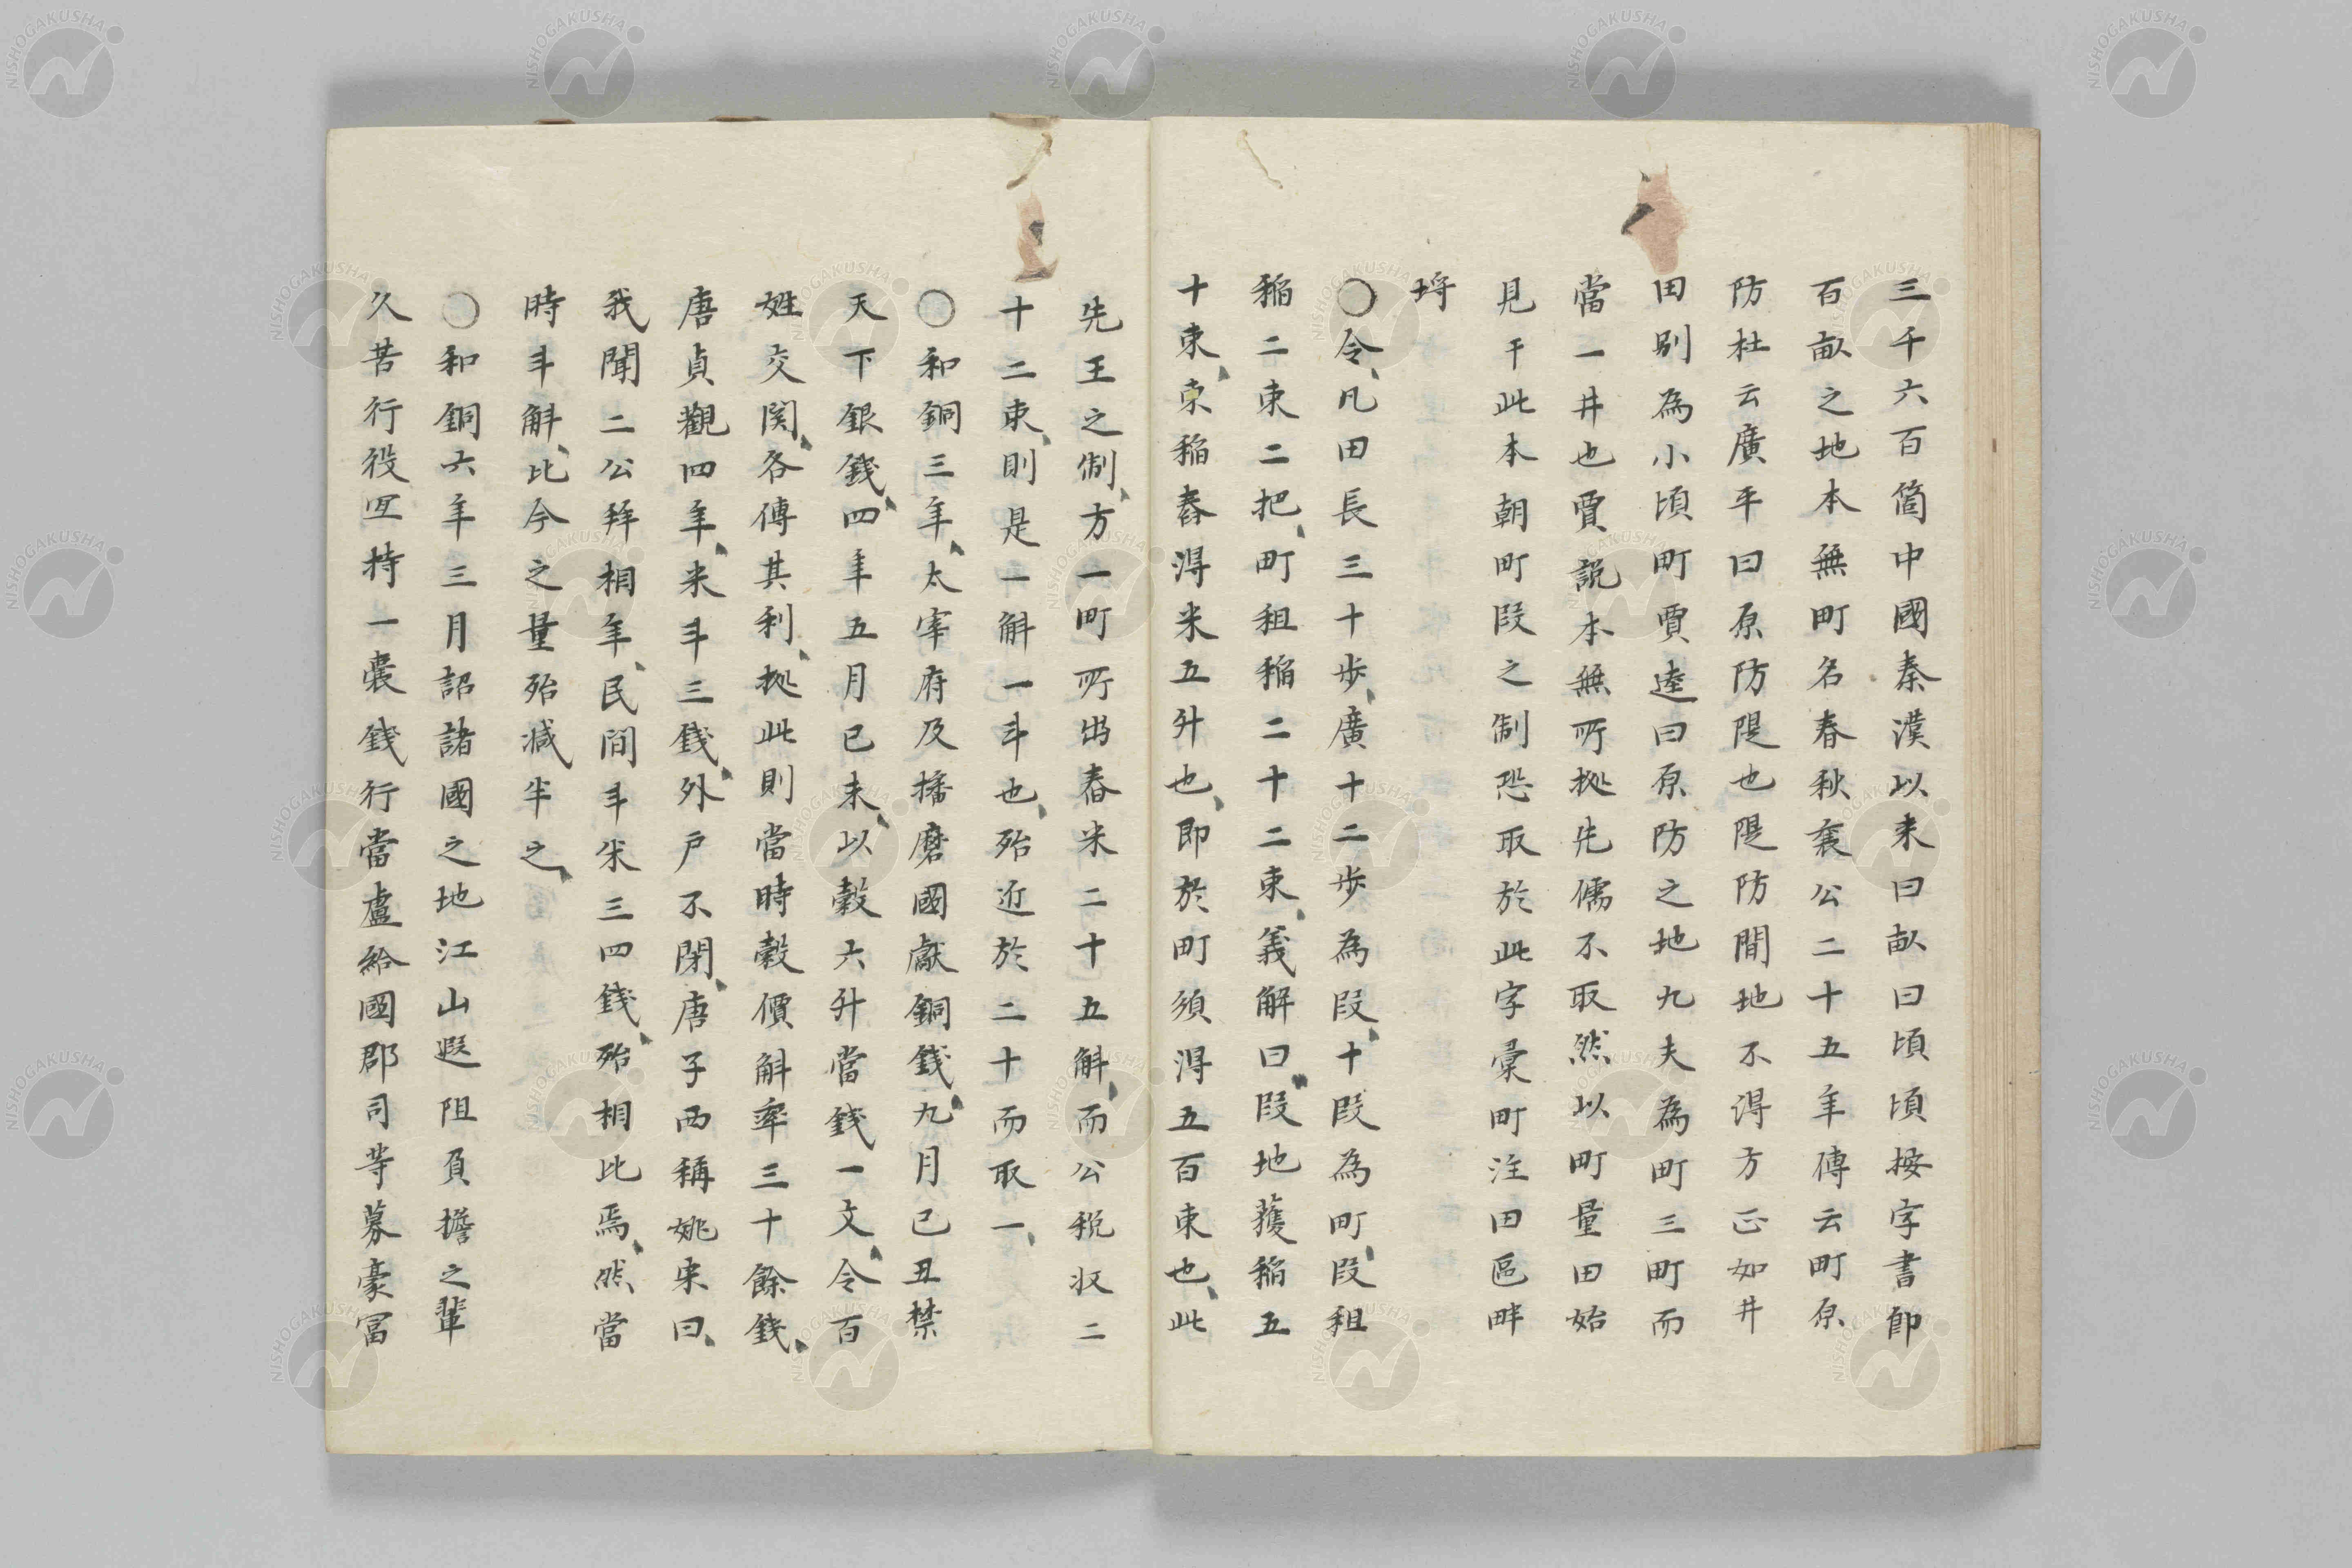 三千六百箇中國秦漢以来曰畝曰頃頃按字書卽
百畝之地本無町名春秋襄公二十五年傳云町原
防杜云廣平曰原防隄也隄防間地不得方正如井
田別為小頃町賈逵曰原防之地九夫為町三町而
當一井也賈説本無所拠先儒不取然以町量田始
見于此本朝町段之制恐取於此字彙町注田區畔
埒
〇令、凡田長三十歩、廣十二歩為段、十段為町、段租
稲二束二把、町租稲二十二束、義解曰、段地獲稲五
十束、束稲舂得米五升也、即於町須得五百束也、此
先王之制、方一町所出舂米二十五斛、而公税収二
十二束、則是一斛一斗也、殆近於二十而取一、
〇和銅三年、太宰府及播磨國獻銅錢、九月己丑禁
天下銀錢、四年五月己未、以穀六升當錢一文、令百
姓交関、各傳其利、拠此則當時穀價斛率三十餘錢、
唐貞觀四年、米斗三錢、外戸不閉、唐子西稱姚宋曰、
我聞二公拜相年、民間斗米三四錢、殆相比焉、然當
時斗斛、比今之量殆減半之、
〇和銅六年三月詔諸國之地江山遐阻負擔之輩
久苦行役宜持一囊錢行當盧給國郡司等募豪冨